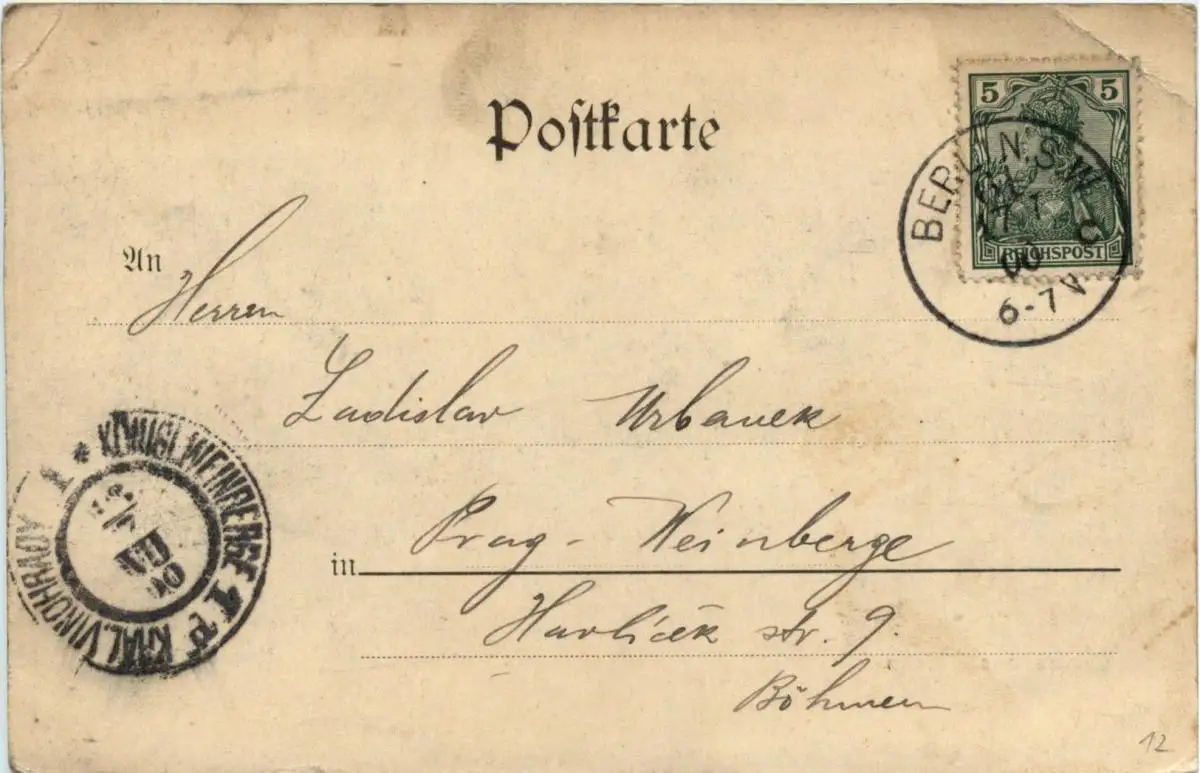 Postkarte
5 5
REICHSPOST
BERLIN. S.W.
00
6-7 V
An Herren
Ladislav Urbanek
in Prag - Weinberge
Havlíček str. 9.
Böhmen
KÖNIGL. WEINBERGE 1
KRÁL. VINOHRADY 1
VII
00
12